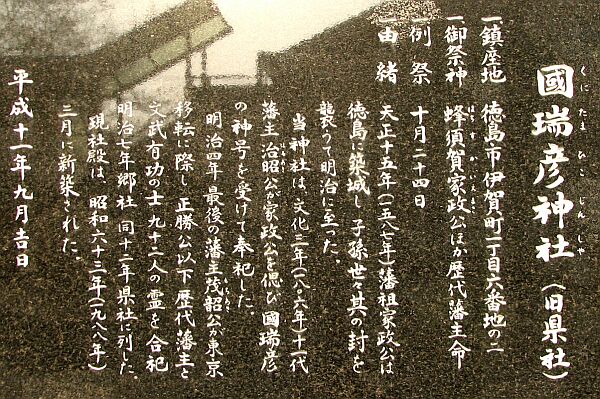 國瑞彦神社（旧県社）
くにたまひこじんしゃ
一鎮座地 徳島市伊賀町一丁目六番地の二
一御祭神 蜂須賀家政公ほか歴代藩主命
はちすかいえまさ
一例祭 十月二十四日
一由緒 天正十五年（一五八七年）藩祖家政公は
徳島に築城し子孫世々其の封を
襲って明治に至った。
当神社は、文化三年（一八〇六年）十一代
藩主治昭公が家政公を偲び國瑞彦
の神号を受けて奉祀した。
明治四年最後の藩主茂韶公が東京
移転に際し正勝公以下歴代藩主と
文武有功の士九十二人の霊を合祀
明治七年郷社同十二年県社に列した。
現社殿は、昭和六十三年（一九八八年）
三月に新築された。
平成十一年九月吉日